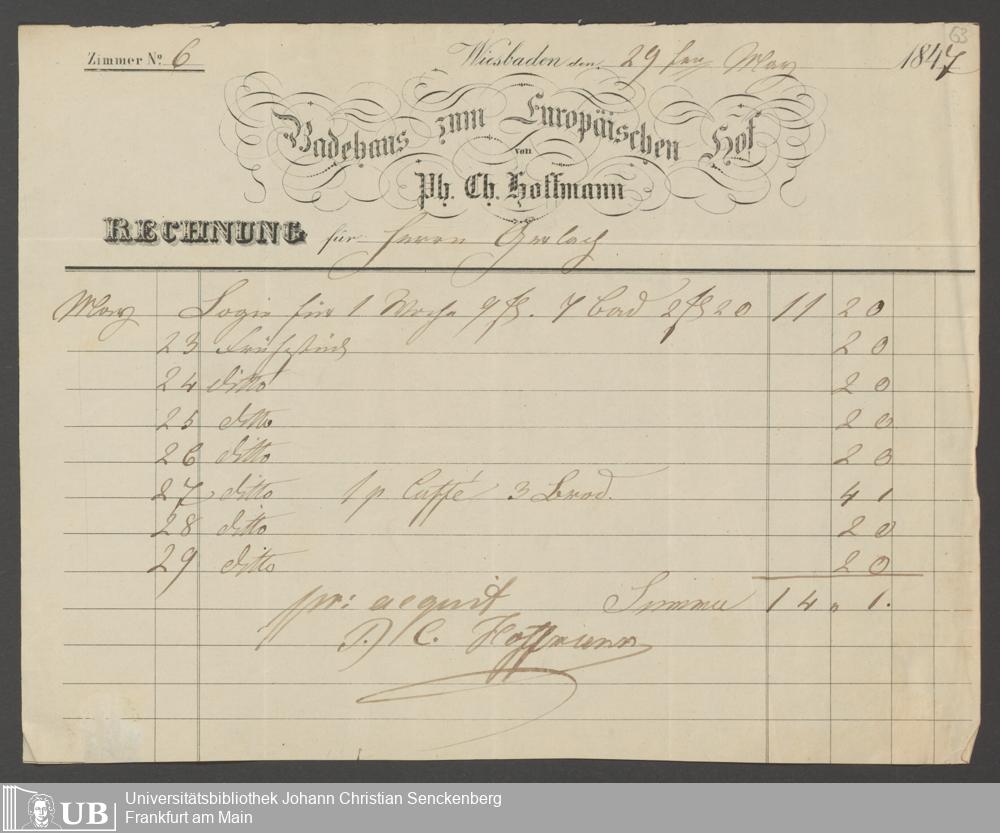 63
Zimmer No. 6 Wiesbaden den 29ten May 1847
Badehaus zum Europäischen Hof
von
Ph. Ch. Hoffmann
RECHNUNG für Herrn Gerlach
May Logis für 1 Woche 9 fl. 7 Bad 2 fl 20 11 20
23 Frühstück 20
24 ditto 20
25 ditto 20
26 ditto 20
27 ditto 1 p Caffé 3 Brod. 41
28 ditto 20
29 ditto 20
pr: acquit Summa 14 " 1.
P. C. Hoffmann
UB Universitätsbibliothek Johann Christian Senckenberg
Frankfurt am Main